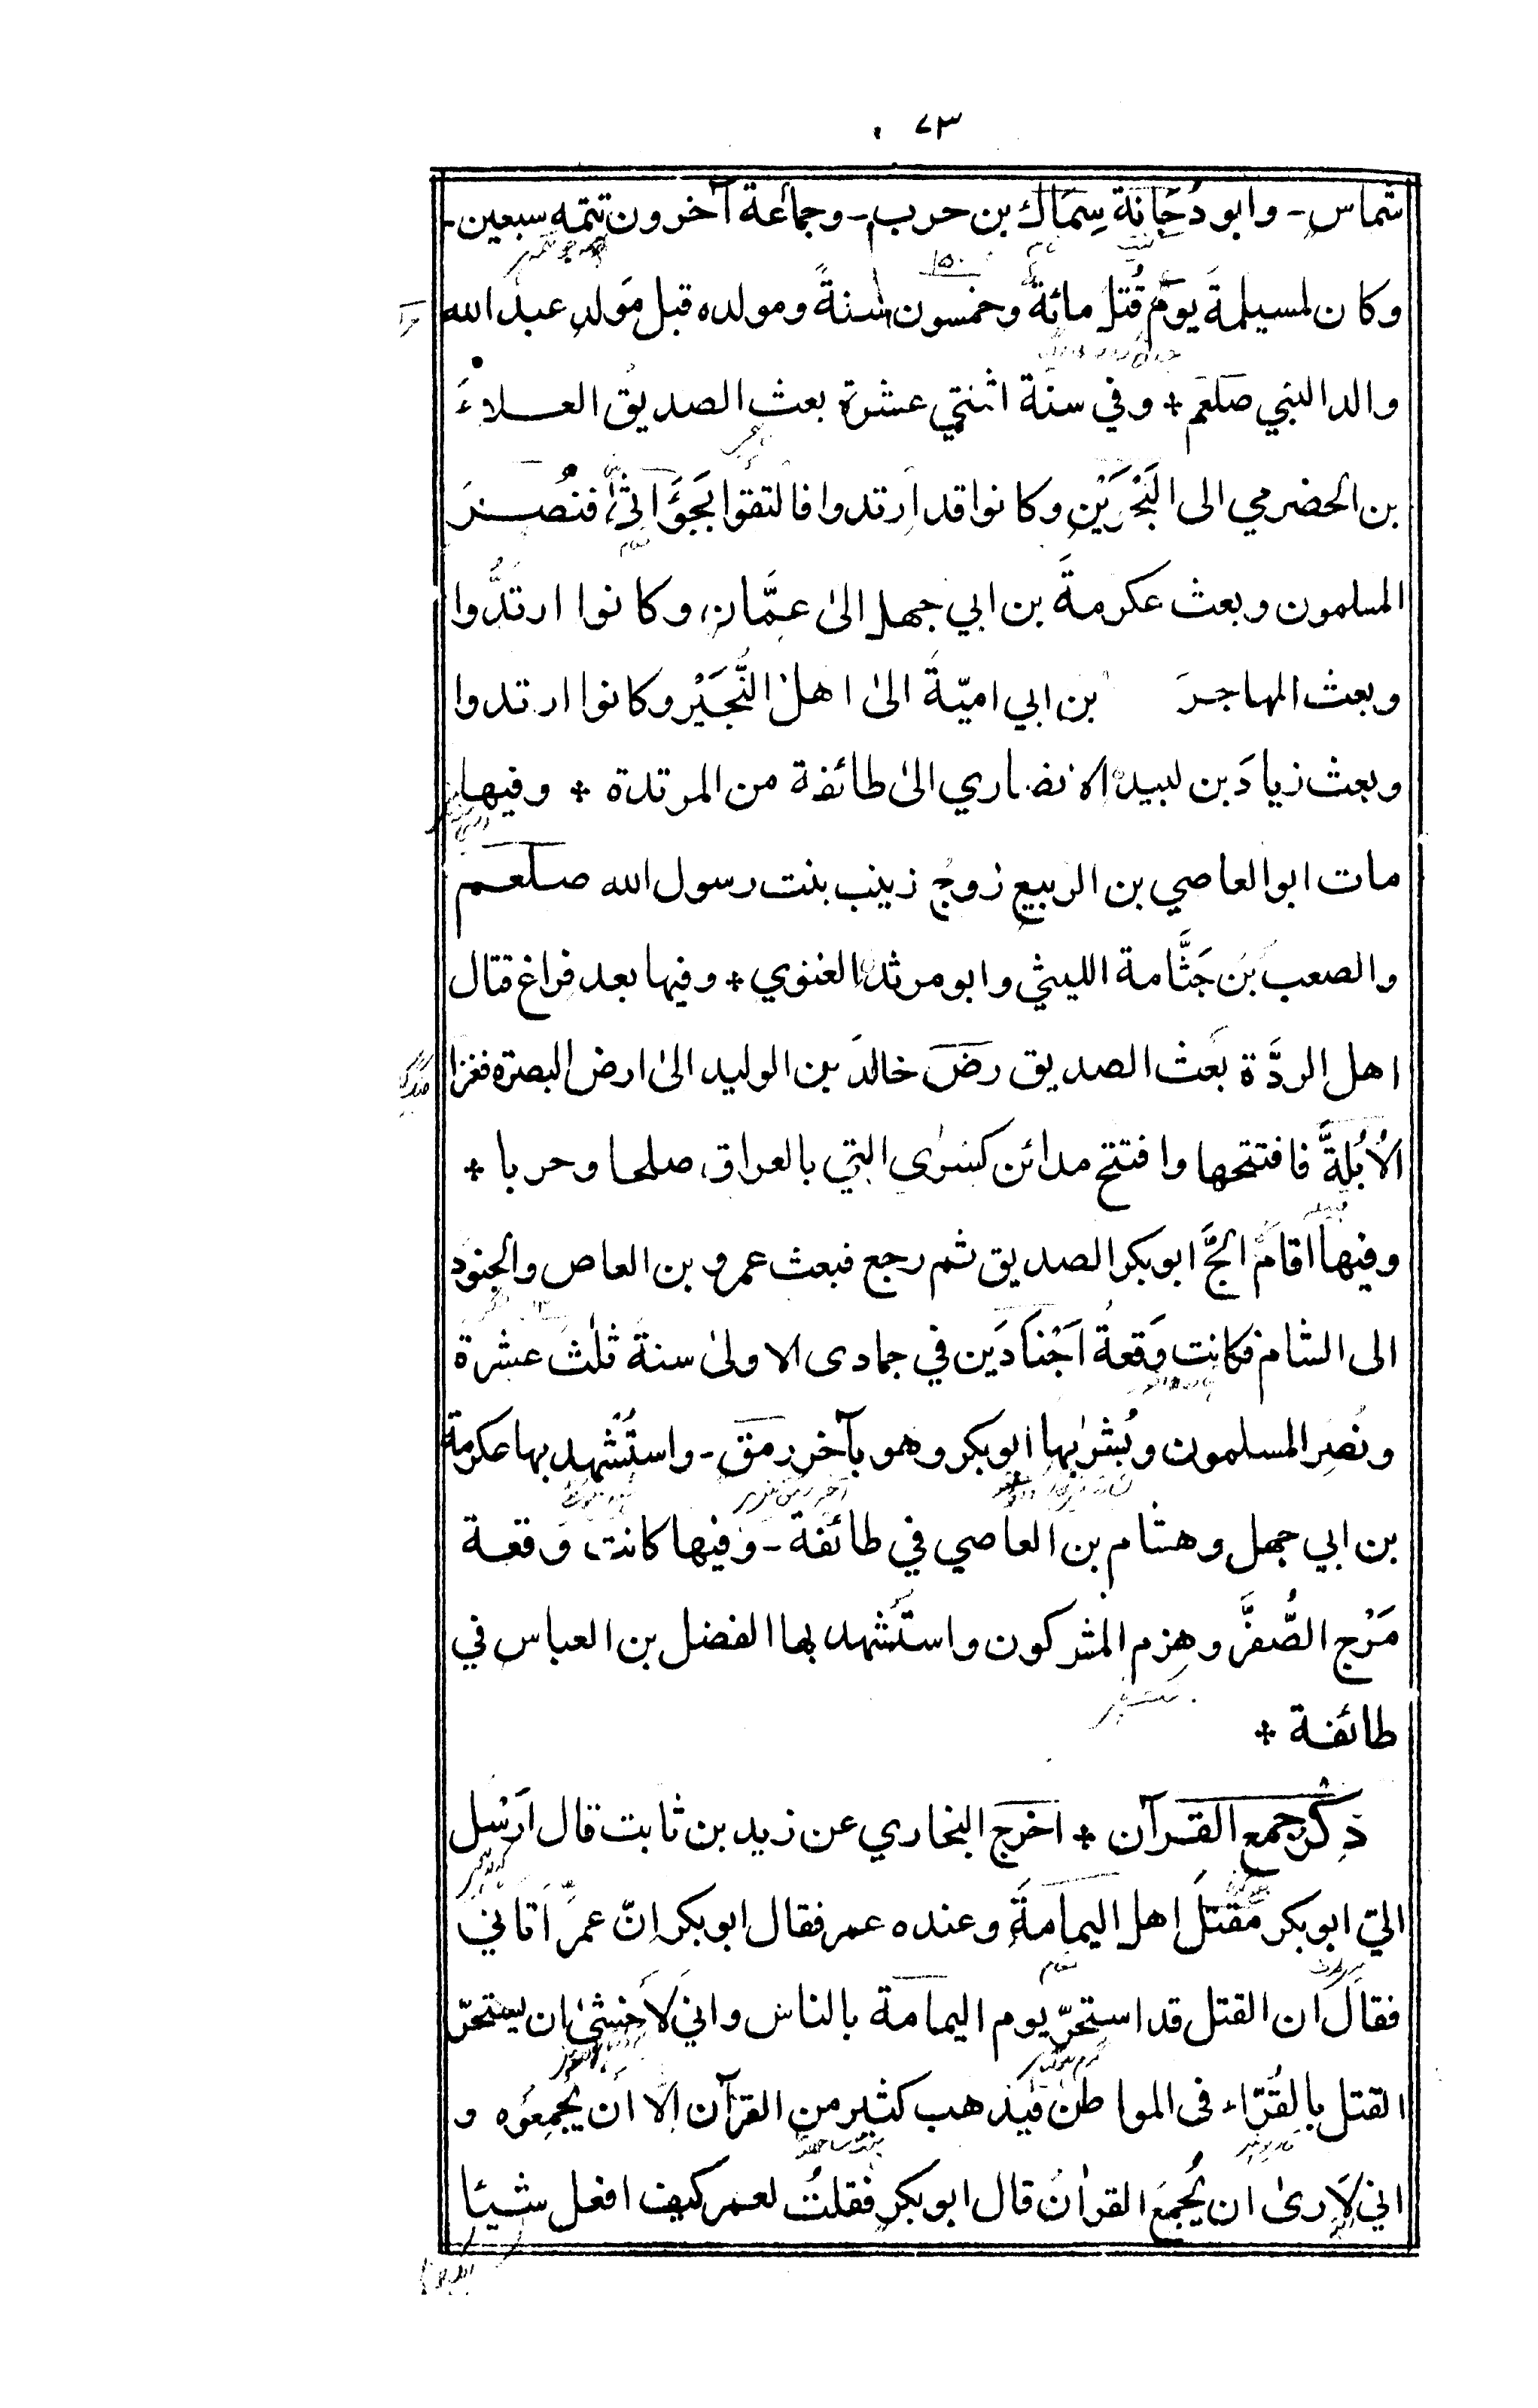 ٧٣
شماس - وابو دُجَانة سِمَاك بن حرب - وجماعة آخرون تتمه سبعين -
وكان لمسيلمة يوم قُتل مائة وخمسون سنةً ومولده قبل مَولد عبد الله
والد النبي صلعم * وفي سنة اثنتي عشرة بعث الصديق العلاءَ
بن الحضرمي الى البَحْرَيْن وكانوا قد ارتدوا فالتقوا بجَؤَاثىٰ فنُصر
المسلمون وبعث عكرمةَ بن ابي جهل الىٰ عمَّان وكانوا ارتدُّوا
وبعث المهاجرَ بن ابي اميّة الىٰ اهل النُّجَيْر وكانوا ارتدوا
وبعث زيادَ بن لبيد الانصاري الىٰ طائفة من المرتدة * وفيها
مات ابو العاصي بن الربيع زوج زينب بنت رسول الله صلعم
والصعب بن جَثَّامة الليثي وابو مرثد الغنوي * وفيها بعد فراغ قتال
اهل الردَّة بعث الصديق رضَ خالدَ بن الوليد الىٰ ارض البصرة فغزا
الاُبُلةَّ فافتتحها وافتتح مدائن كسرٰى التي بالعراق صلحا وحربا *
وفيها اقام الحجَّ ابوبكر الصديق ثم رجع فبعث عمرو بن العاص والجنود
الى الشام فكانت وَقعةُ اَجْنادَين في جمادى الاولىٰ سنة ثلٰث عشرة
ونُصِر المسلمون وبُشّر بها ابوبكر وهو بآخر رمق - واستُشْهِد بها عكرمة
بن ابي جهل وهشام بن العاصي في طائفة - وفيها كانت وقعة
مَرْج الصُّفَّر وهزم المشركون واستشهد بها الفضل بن العباس في
طائفة *
ذِكْر جمع القرآن * اخرج البخاري عن زيد بن ثابت قال ارْسل
اليّ ابوبكر مَقتلَ اهل اليمامةِ وعنده عمر فقال ابوبكر انّ عمرَ اتاني
فقال ان القتل قد استحرّ يوم اليمامة بالناس واني لاَخشىٰ ان يستحرّ
القتل بالقُرّاء فى المواطن فيذهب كثير من القرآن الّا ان يُجمعُوه و
اني لَارىٰ ان يُجمَعَ القراٰنُ قال ابوبكر فقلتُ لعمر كيف افعل شيئا